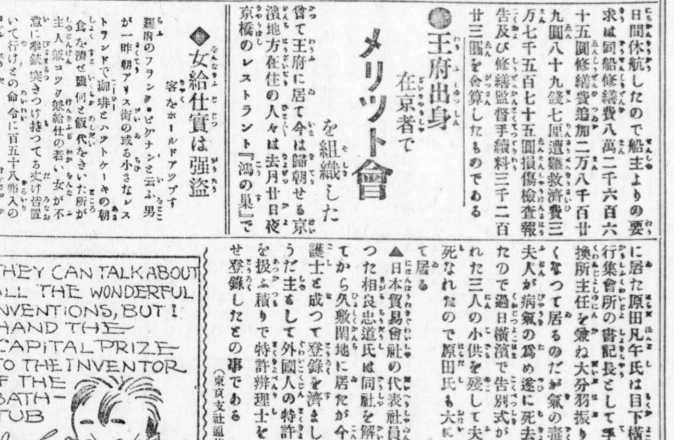 日間休航したので船主よりの要
求は同船修繕費八萬二千六百六
十五圓修繕費追加二万八千百廿
九圓八十九錢七厘遭難救濟費三
万七千五百七十五圓損傷檢査報
告及び修繕監督手續料三千二百
廿三圓を會算したものである
王府出身
在京者で
メリット會
を組織した
曾て王府に居て今は歸朝せる京
濱地方在住の人々は去月廿日夜
京橋のレストラント『鴻の巣』で
◆女給仕實は强盜
客をホールドアツプす
羅府のフランク・ビグナンと云ふ男
が一昨朝アリス街の或る小さなレス
トランドで珈琲とハツトケーキの朝
食を濟せ磁何と飯代をきいた所が
主人組コツク娘給仕の若い女が不
意に拳銃突きつけ持つてる丈け皆置
いて行けとの命令に百五十八弗入の
に居た原田凡午氏は目下横
行集會所の書記長として手
換所主任を兼ね大分羽振り
くなつて居るのだが氣の毒
夫人が病氣の爲め遂に死去
たので過日横濱で告別式が
れた三人の小供を殘して夫
死なれたので原田氏も大に
て居る
▲日本貿易會社の代表社員
つた相良忠道氏は同社を解
てから久敷閑地に居たが今
護士と成つて登錄を濟まし
うだ主もして外國人の特許
を扱ふ積りで特許辨理士を
せ登錄したとの事である
(東京支社通
THEY CAN TALK ABOUT
ALL THE WONDERFUL
INVENTIONS, BUT I
HAND THE
CAPITAL PRIZE
TO THE INVENTOR
OF THE
BATH-
TUB